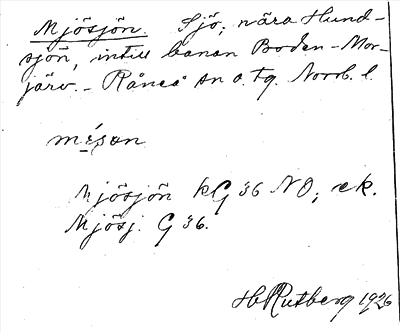 Mjösjön. Sjö, nära Hund-
sjön, intill banan Boden-Mor-
järv. - Råneå sn o. tg. Norrb. l.
mésɑn
Mjösjön KG 36 NO; ek.
Mjösj. G 36.
H Rutberg 1926